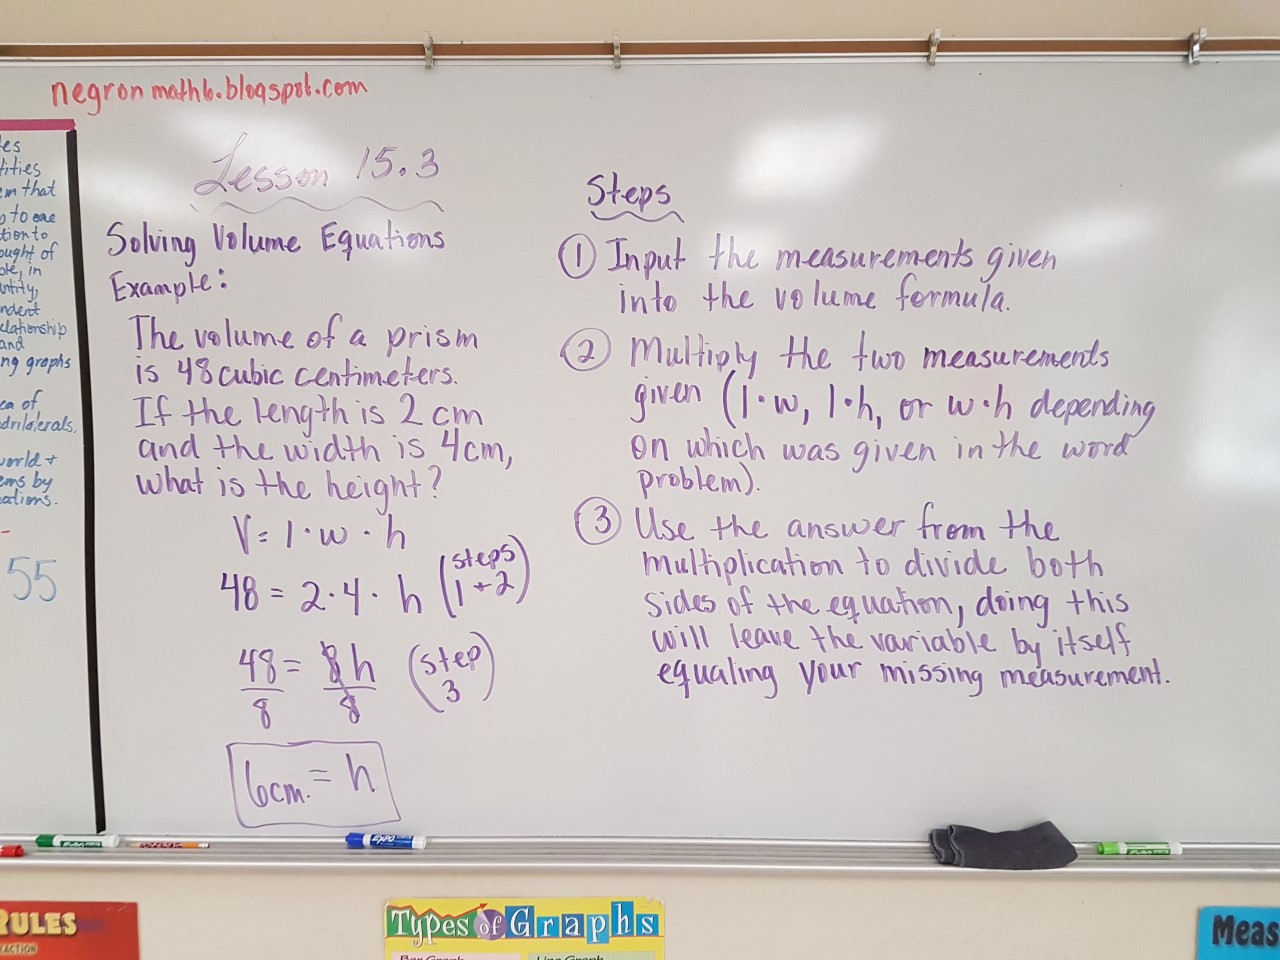 negronmath6.blogspot.com
es
tities
em that
to one
tion to
ought of
ole, in
ntity,
ndent
elationship
and
ng graphs
ea of
drilaterals,
world +
ems by
ations.
55
Lesson 15.3
Solving Volume Equations
Example:
The volume of a prism
is 48 cubic centimeters.
If the length is 2 cm
and the width is 4cm,
what is the height?
V = l · w · h
48 = 2 · 4 · h (steps 1 + 2)
48 = 8h (step 3)
8 8
6cm. = h
Steps
① Input the measurements given
into the volume formula.
② Multiply the two measurements
given (l·w, l·h, or w·h depending
on which was given in the word
problem).
③ Use the answer from the
multiplication to divide both
sides of the equation, doing this
will leave the variable by itself
equaling your missing measurement.
EXPO
RULES
RACTION
Types of Graphs
Bar Graph
Line Graph
Meas